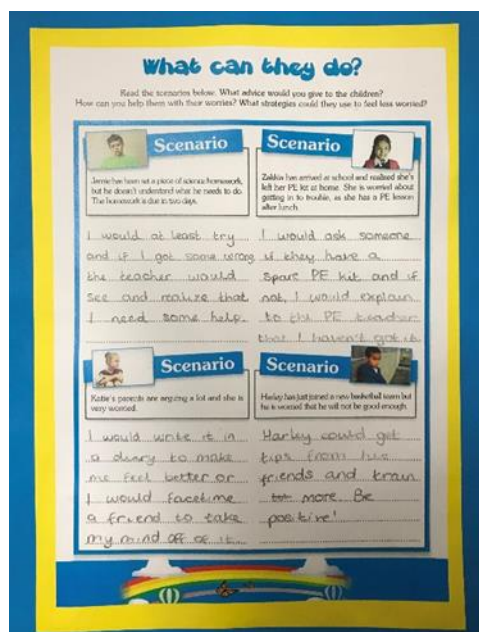 What can they do?
Read the scenarios below. What advice would you give to the children?
How can you help them with their worries? What strategies could they use to feel less worried?
Scenario
Jamie has been set a piece of science homework,
but he doesn't understand what he needs to do.
The homework is due in two days.
I would at least try
and if I got some wrong
the teacher would
see and realize that
I need some help.
Scenario
Zakkia has arrived at school and realised she's
left her PE kit at home. She is worried about
getting in to trouble, as she has a PE lesson
after lunch.
I would ask someone
if they have a
spare PE kit and if
not, I would explain
to the PE teacher
that I haven't got it.
Scenario
Katie's parents are arguing a lot and she is
very worried.
I would write it in
a diary to make
me feel better or
I would facetime
a friend to take
my mind off of it.
Scenario
Harley has just joined a new basketball team but
he is worried that he will not be good enough.
Harley could get
tips from his
friends and train
more. Be
positive!